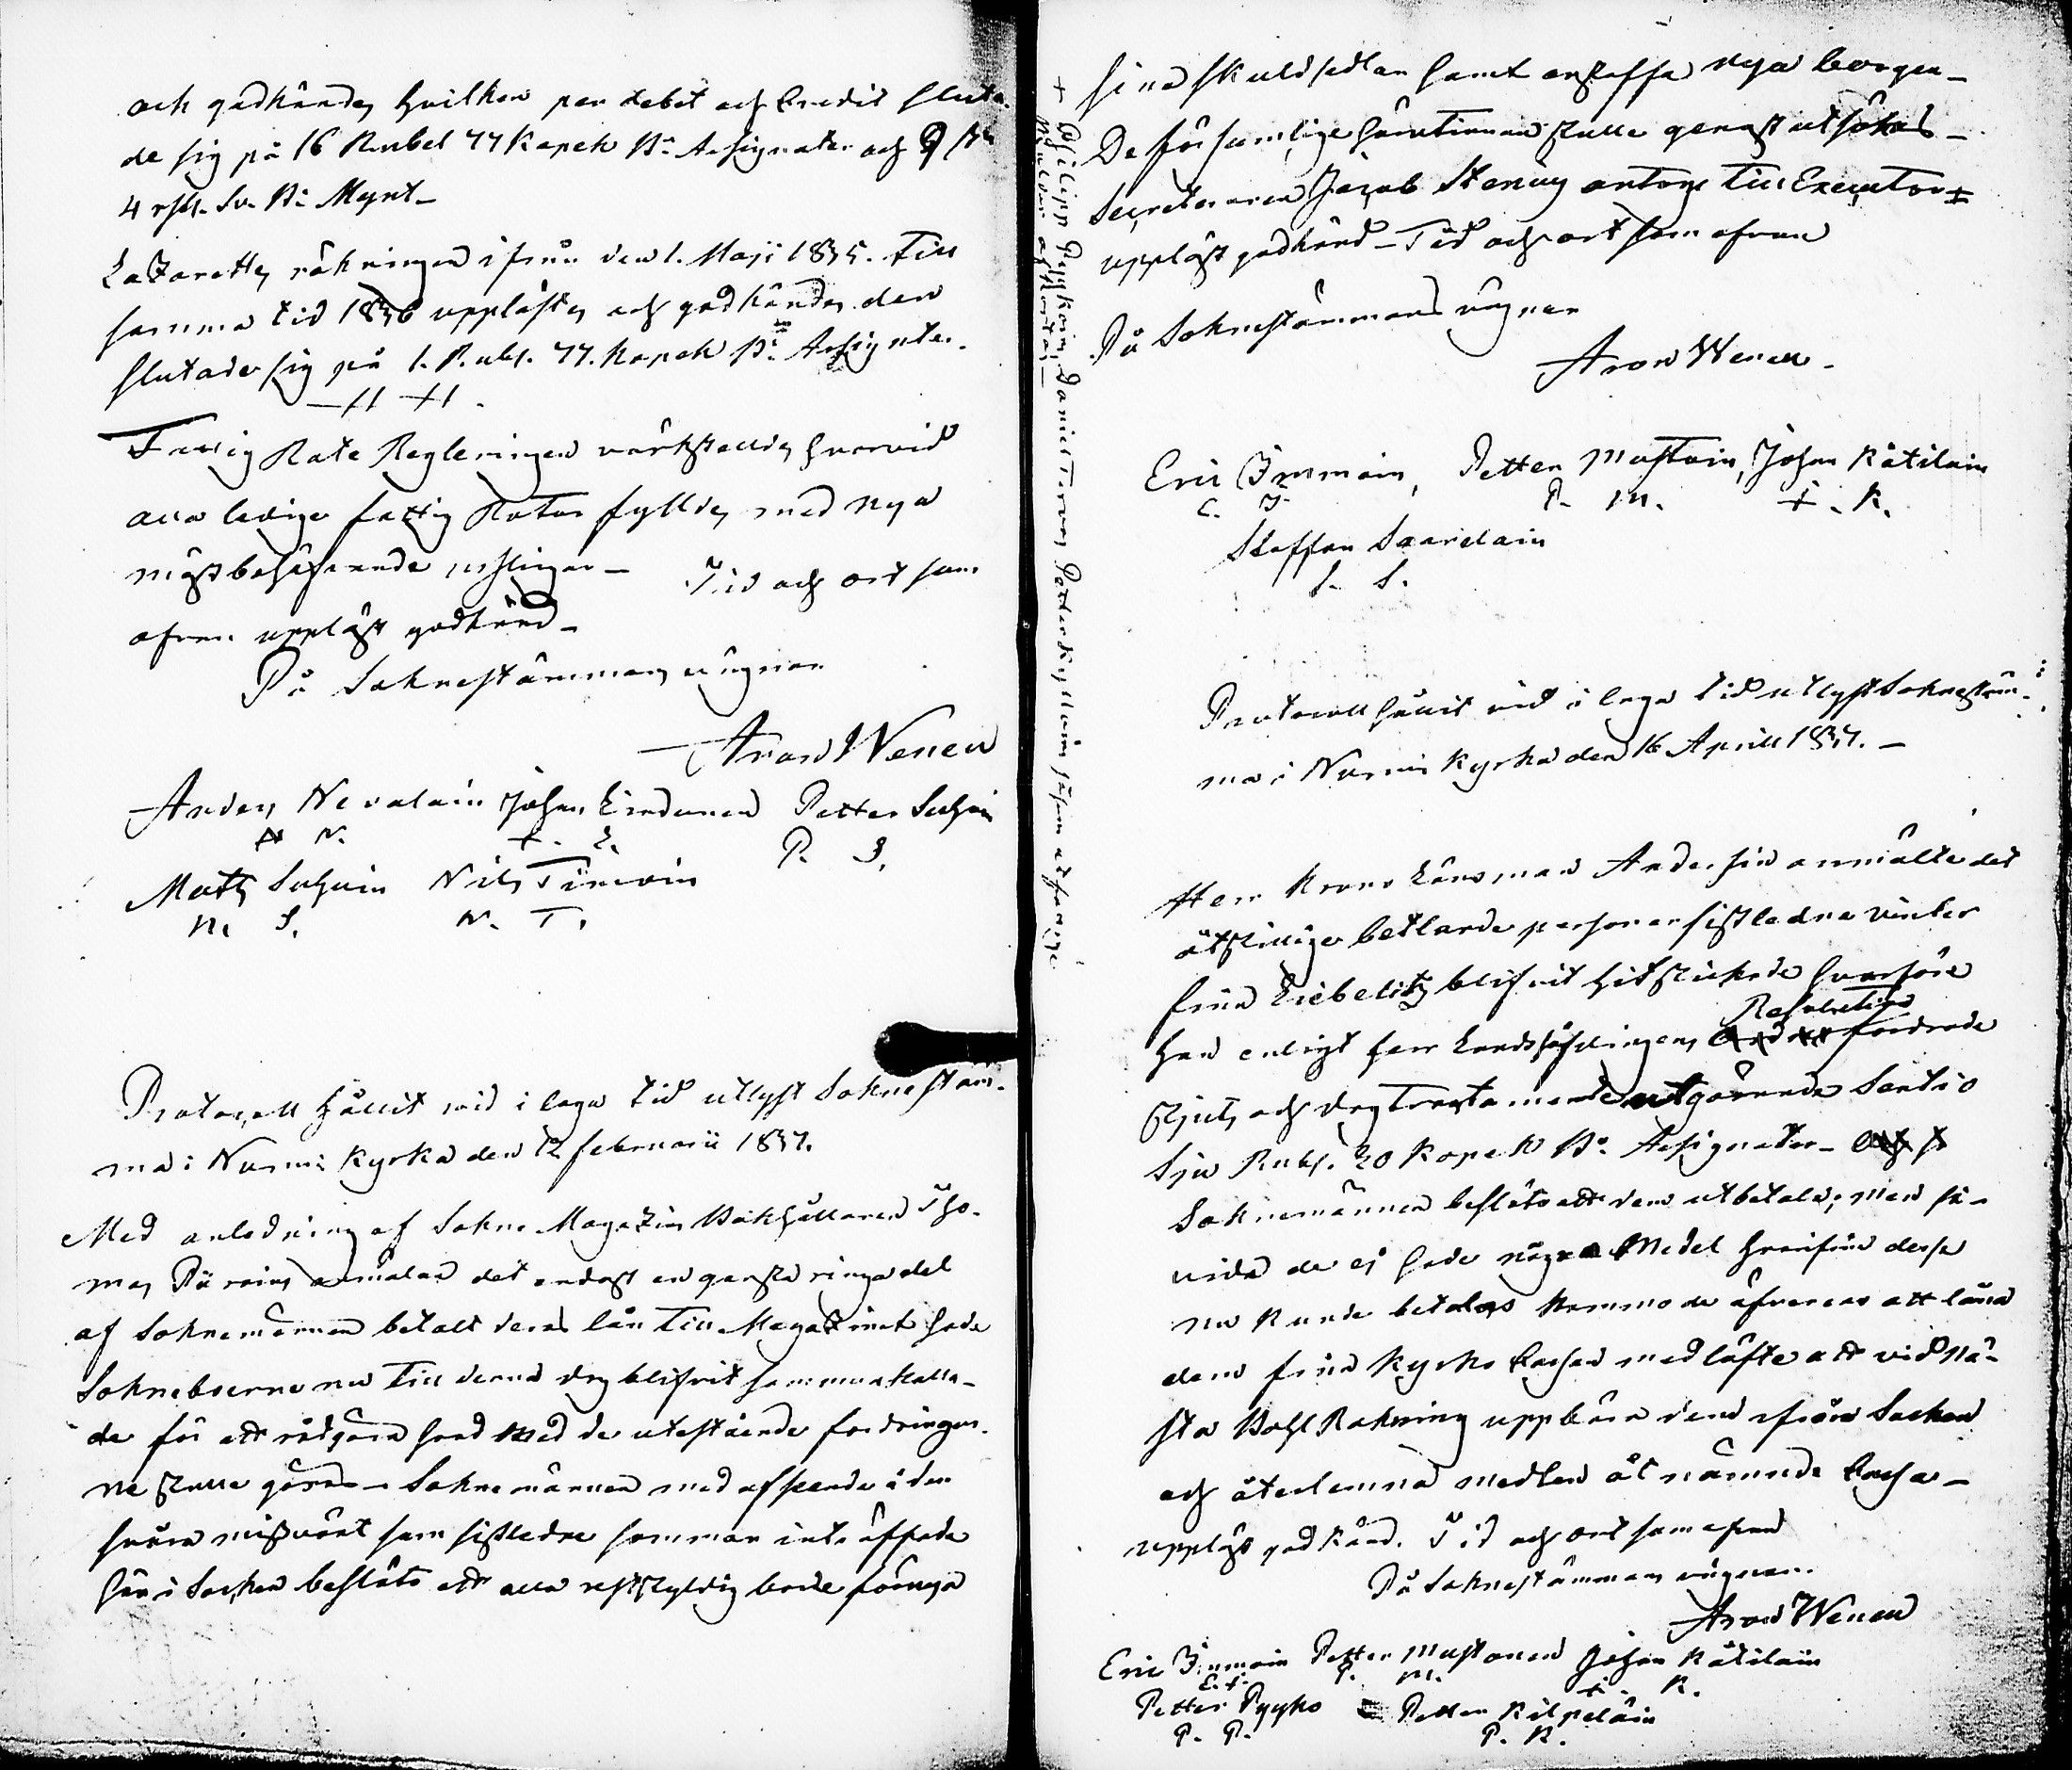 och godkändes hvilken per debet och Credit sluta-
de sig på 16 Rubel 77 Kopek Bco Assignater och
4 rst. Sv. Bco Mynt_
Lazaretts räkningen ifrån den 1. Maji 1835. till
samma tid 1836 upplästes och godkändes den
slutade sig på 1. Rubl. 77. Kopek Bco Assignater.
Fattig Rote Regleringen värkställdes hvarvid
alla lediga fattig Rotar fylldes med nya
mäst behöfvande usslingar_ Tid och ort som
ofvan uppläst godkänd_
På Soknestämmans vägnar
Aron Wenell
Anders Nevalain Johan Lindunen Petter Suhoin
A N. I. L. P. S.
Matts Suhoin Nils Timoin
M. S. N. T.
Protocoll hållit vid i laga tid utlyst Soknestäm-
ma i Nurmis Kyrka den 12 februarii 1837.
Med anledning af Sokne Magazins Bokhållaren Tho-
mas anmälan det endast en ganska ringa del
af Soknemännen betalt deras lån till Magazinet hade
Soknеboerne nu till denna dag blifvit sammankalla-
de för att rådgöra hvad med de utestående fordringar-
ne skulle göras_ Soknemännen med afseende å den
svåra missväxt som sistledne sommar inträffade
här i Socken beslöto att alla restskyldig borde förnya
sina skuldsedlar samt anskaffa nya borgen_
De försumlige hemtinnan skulle genast utsökas_
Secreteraren Jacob Stenuy antogs till Executor +
uppläst godkänd_ Tid och ort som ofvan
På Soknestämmans vägnar
Aron Wenell.
Eric Immoin, Petter Mustoin, Johan Kätilain
E. I. P. M. I. K.
Staffan Saarelain
S. S.
+ Philipp Pyykoin, Daniel Tervo, Petter Kyllöin såsom
Protocoll hållit vid i laga tid utlyst Soknestäm-
ma i Nurmis Kyrka den 16 Aprill 1837._
Herr Krono Länsman Andersin anmälte det
åtskillige betlande personer sistledne vinter
från Liebelitz blifvit hitskickade hvarföre
Resolution
han enligt herr Landshöfdingens fordrade
skjuts och dagtractamente utgörande Santio
Sju Rubl. 20 Kopek Bco Assignater_
Soknemännen beslöto att dem utbetala; men så-
vida de ej hade några Medel hvarifrån dessa
nu kunde betalas kommo de öfverens att låna
dem från Kyrko Cassan med löfte att vid nä-
sta Bohl Räkning uppbära dem ifrån Socken
och återlemna medlen åt nämnde Cassa_
uppläst godkänd. Tid och ort som ofvan
På Soknestämmans vägnar.
Aron Wenell
Eric Immoin Petter Mustonen Johan Kätilain
E. I. P. M. I. K.
Petter Pyyko Petter Kilpeläin
P. P. P. K.